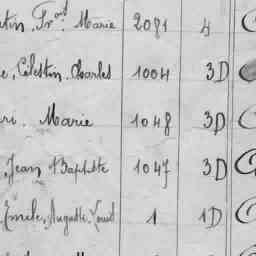 tin, Fr.ois Marie 2081 4
e, Célestin, Charles 1004 3D
ri. Marie 1048 3D
, Jean Baptiste 1047 3D
, Emile, Auguste, Louis 1 1D